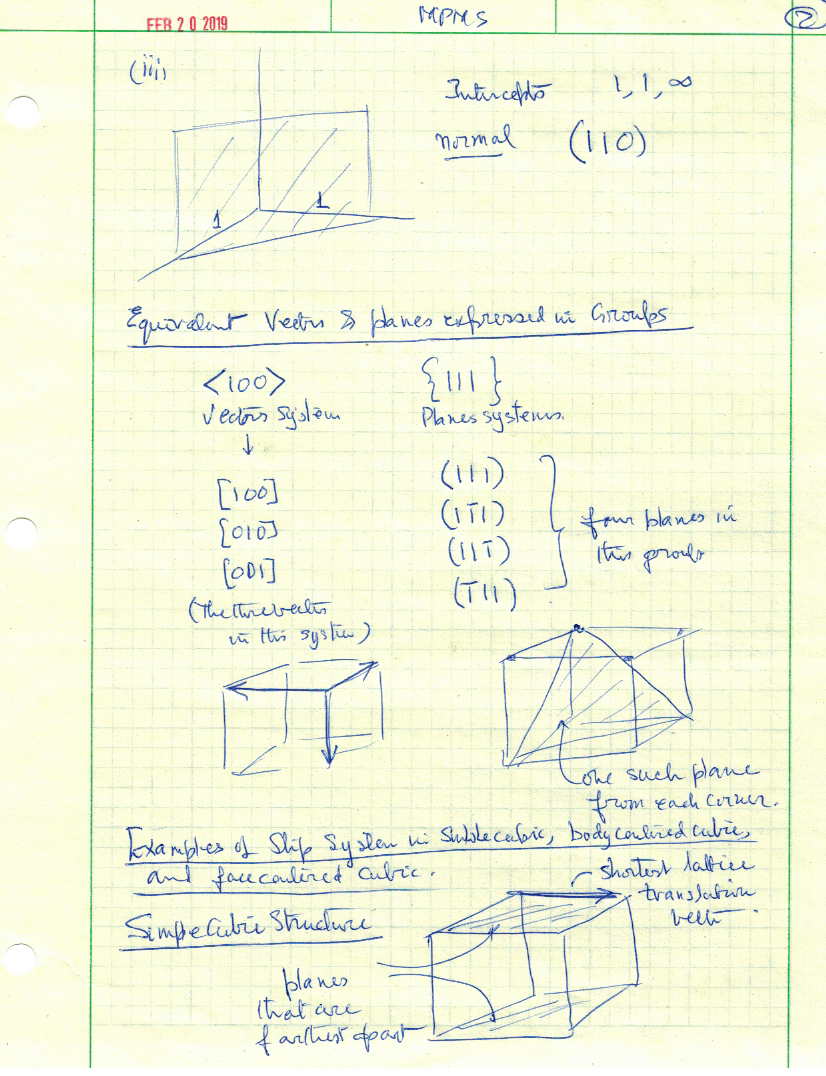 FEB 20 2019
MPMS
2
(iii)
Intercepts 1, 1, ∞
normal (110)
1
1
Equivalent Vectors & planes expressed in Groups
<100>
Vectors System
↓
[100]
[010]
[001]
(The three vectors
in this system)
{111}
Planes systems.
(111)
(11̅1)
(111̅)
(1̅11)
four planes in
this group
one such plane
from each corner.
Examples of Slip System in Simple cubic, body centered cubic,
and face centered cubic.
Simple Cubic Structure
shortest lattice
translation
vector.
planes
that are
farthest apart